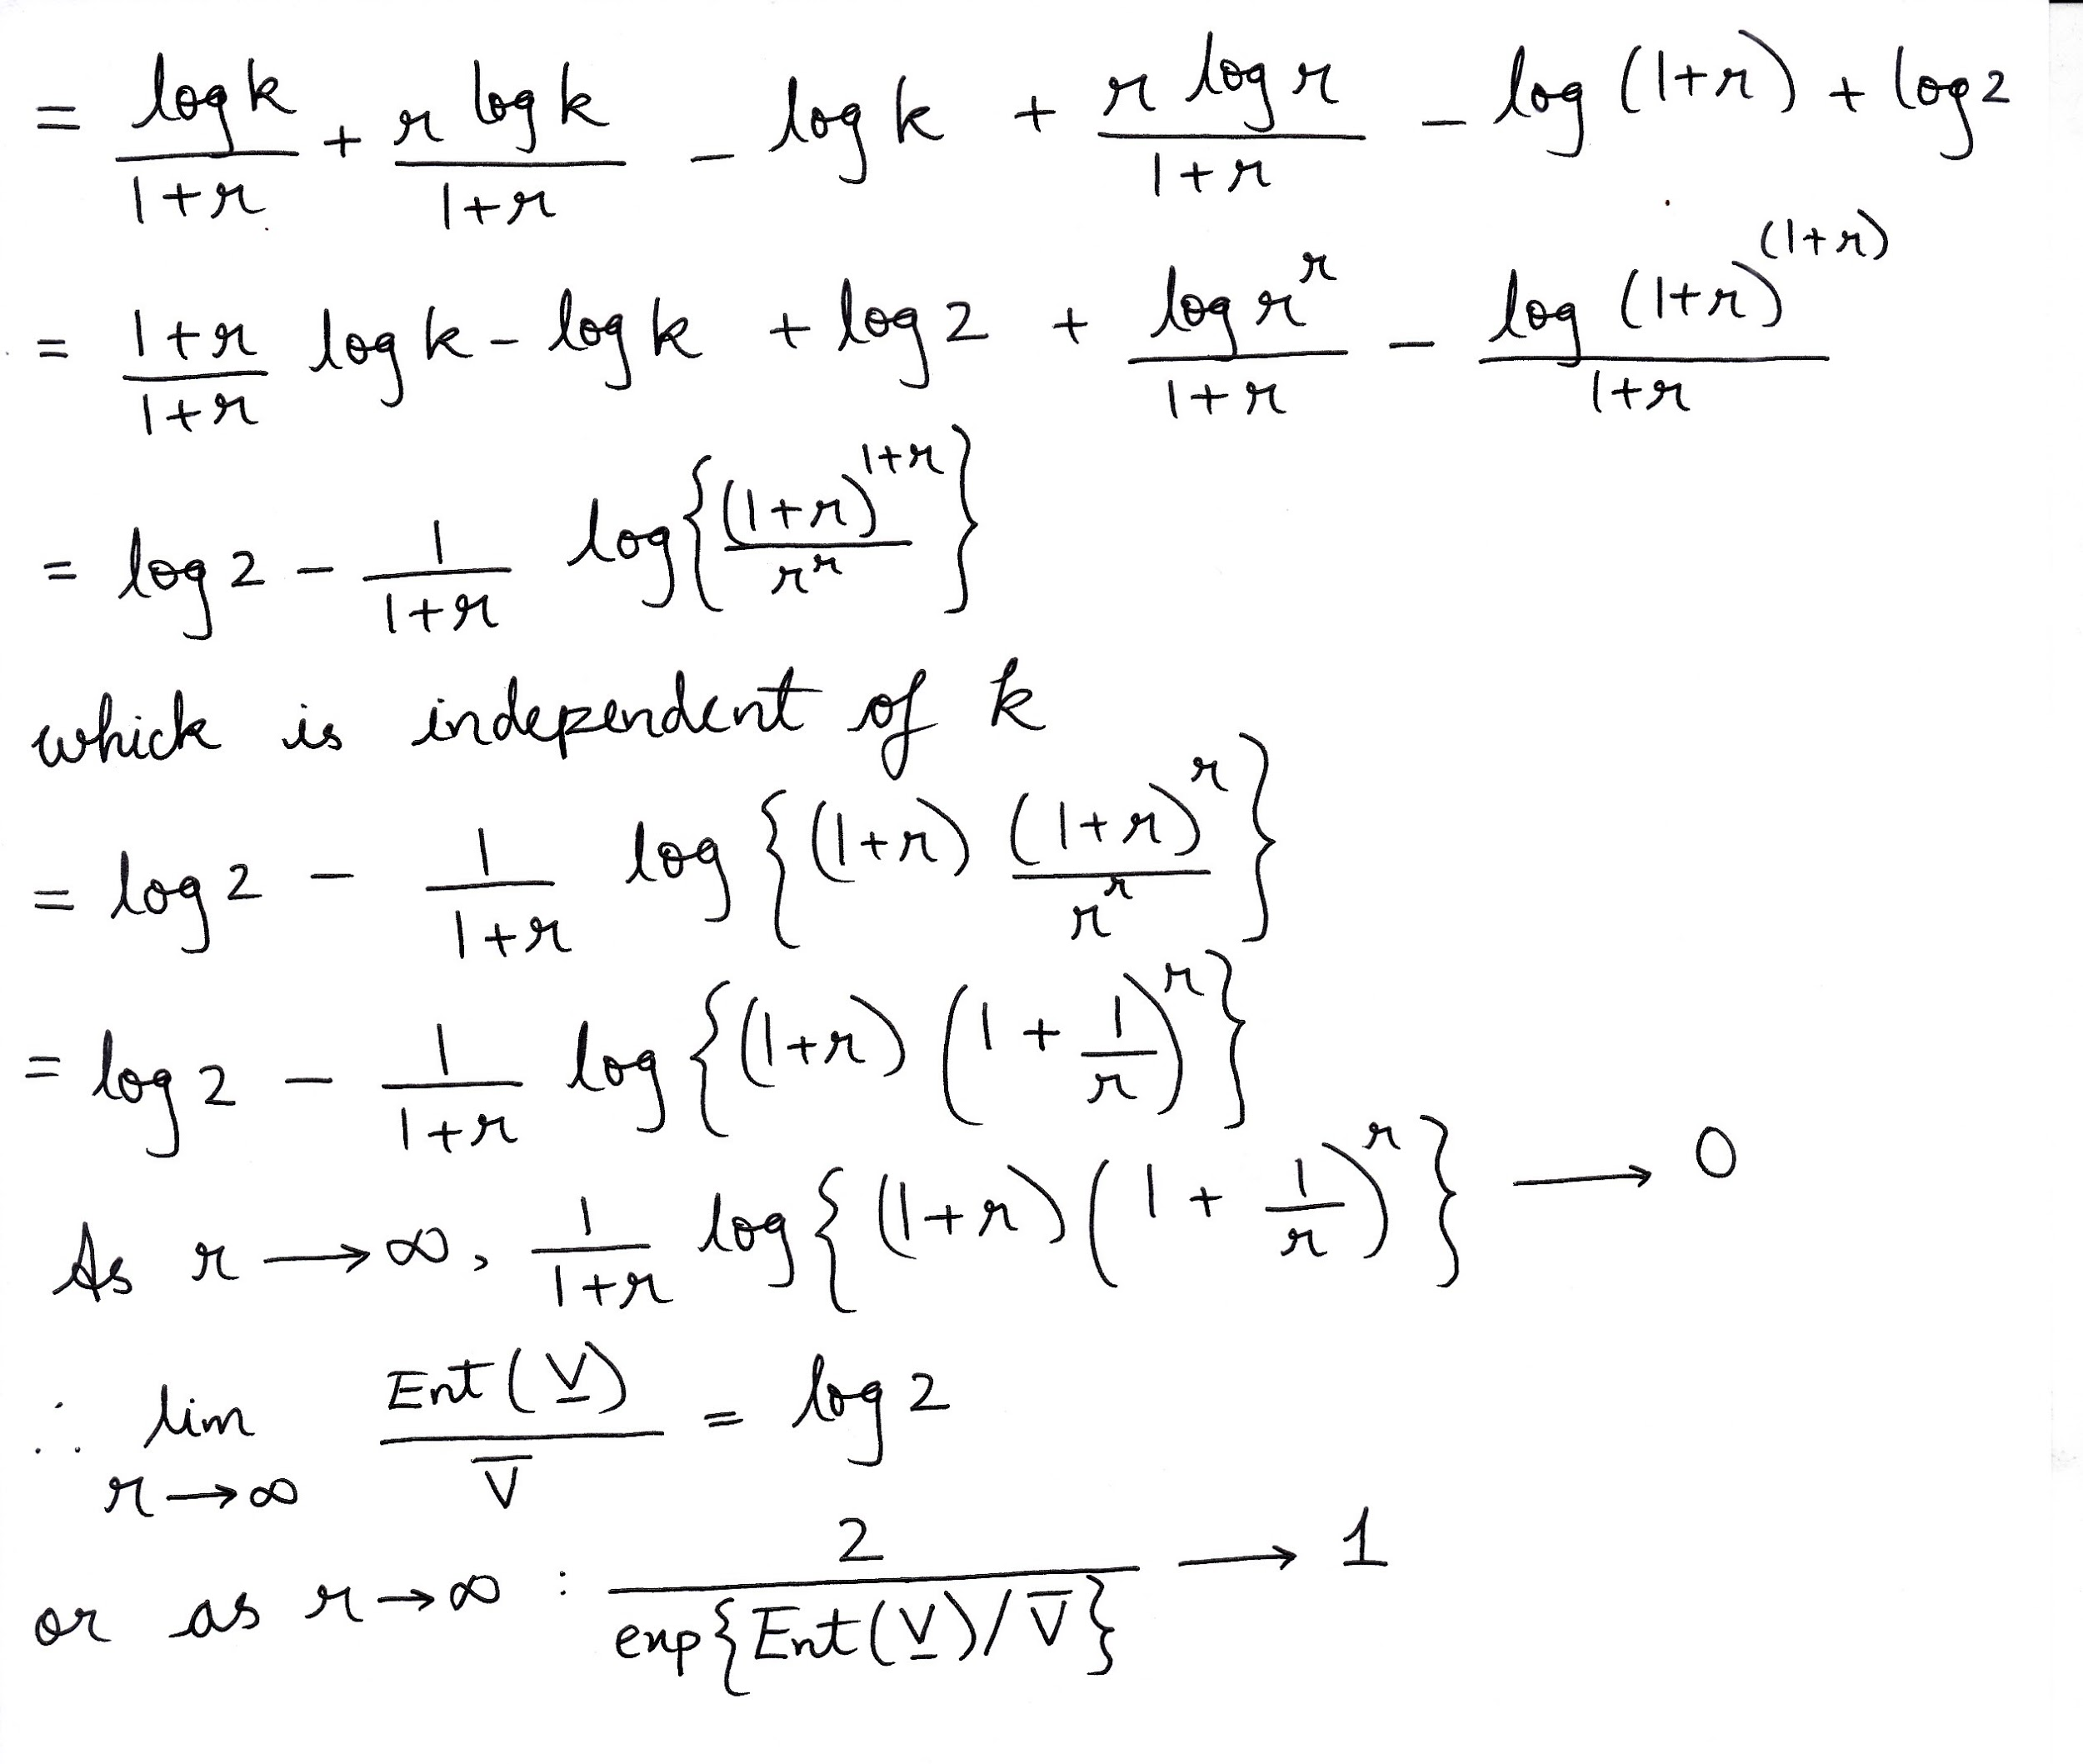 = \frac{log k}{1+r} + \frac{r log k}{1+r} - log k + \frac{r log r}{1+r} - log (1+r) + log 2
= \frac{1+r}{1+r} log k - log k + log 2 + \frac{log r^r}{1+r} - \frac{log (1+r)^{(1+r)}}{1+r}
= log 2 - \frac{1}{1+r} log \{ \frac{(1+r)^{1+r}}{r^r} \}
which is independent of k
= log 2 - \frac{1}{1+r} log \{ (1+r) \frac{(1+r)^r}{r^r} \}
= log 2 - \frac{1}{1+r} log \{ (1+r) ( 1 + \frac{1}{r} )^r \}
As r → ∞, \frac{1}{1+r} log \{ (1+r) ( 1 + \frac{1}{r} )^r \} → 0
∴ lim_{r → ∞} \frac{Ent(\underline{V})}{\overline{V}} = log 2
or as r → ∞ : \frac{2}{exp\{Ent(\underline{V})/\overline{V}\}} → 1